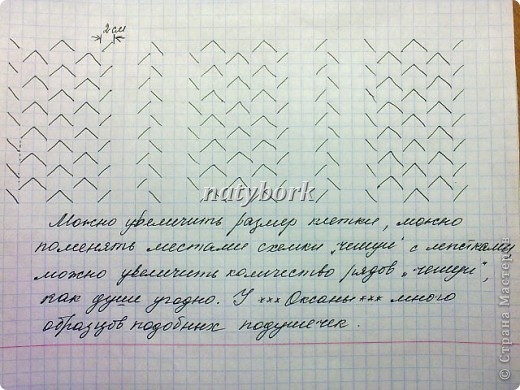 2 см
natybork
Можно увеличить размер клетки, можно
поменять местами схемки "чешуи" с лепстками
можно увеличить количество рядов "чешуи",
как душе угодно. У ***Оксаны*** много
образцов подобных подушечек.
© Страна Мастеров